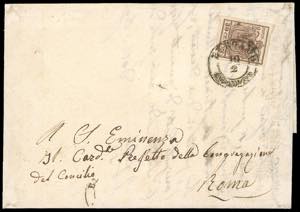 FERRARA
10
2
A S. Eminenza
Il Card.e Prefetto della Congregazione
del Concilio
Roma